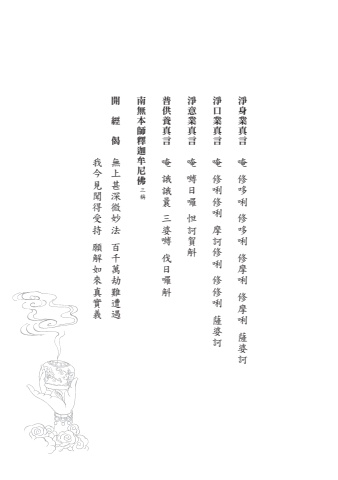 淨身業真言 唵 修哆唎 修哆唎 修摩唎 修摩唎 薩婆訶
淨口業真言 唵 修唎修唎 摩訶修唎 修修唎 薩婆訶
淨意業真言 唵 嚩日囉 怛訶賀斛
普供養真言 唵 誐誐曩 三婆嚩 伐日囉斛
南無本師釋迦牟尼佛 三稱
開經偈 無上甚深微妙法 百千萬劫難遭遇
我今見聞得受持 願解如來真實義